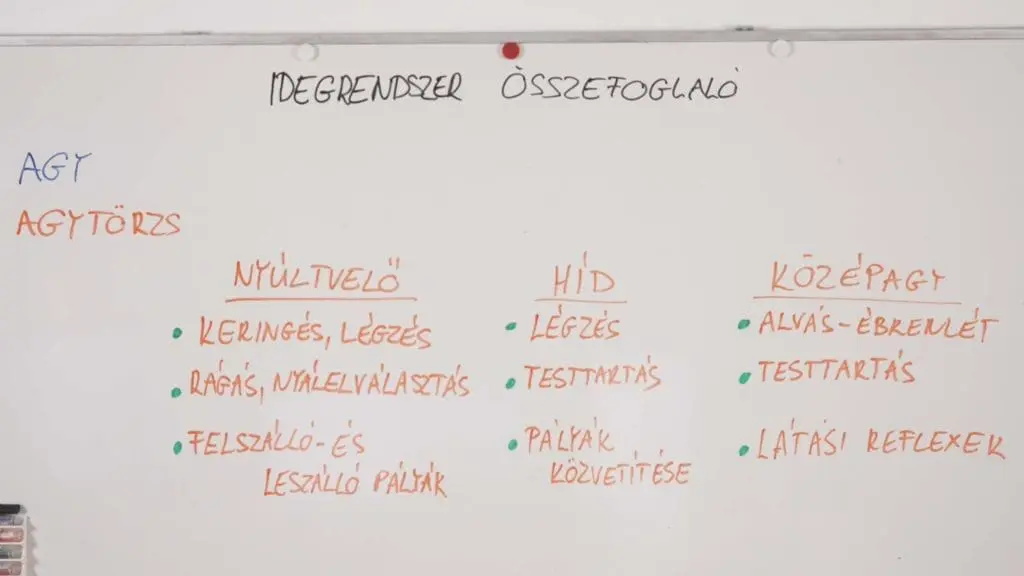 IDEGRENDSZER ÖSSZEFOGLALÓ
AGY
AGYTÖRZS
NYÚLTVELŐ
• KERINGÉS, LÉGZÉS
• RÁGÁS, NYÁLELVÁLASZTÁS
• FELSZÁLLÓ- ÉS
LESZÁLLÓ PÁLYÁK
HÍD
• LÉGZÉS
• TESTTARTÁS
• PÁLYÁK
KÖZVETÍTÉSE
KÖZÉPAGY
• ALVÁS-ÉBRENLÉT
• TESTTARTÁS
• LÁTÁSI REFLEXEK